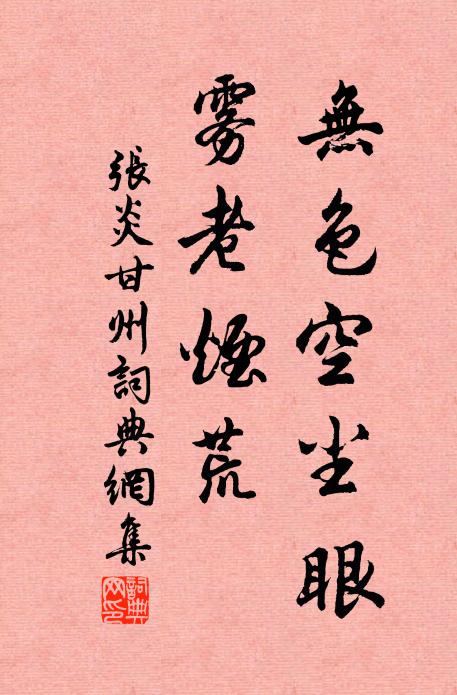 無色空尘眼
雾老煙荒
張炎甘州詞典網集
詞典
网印